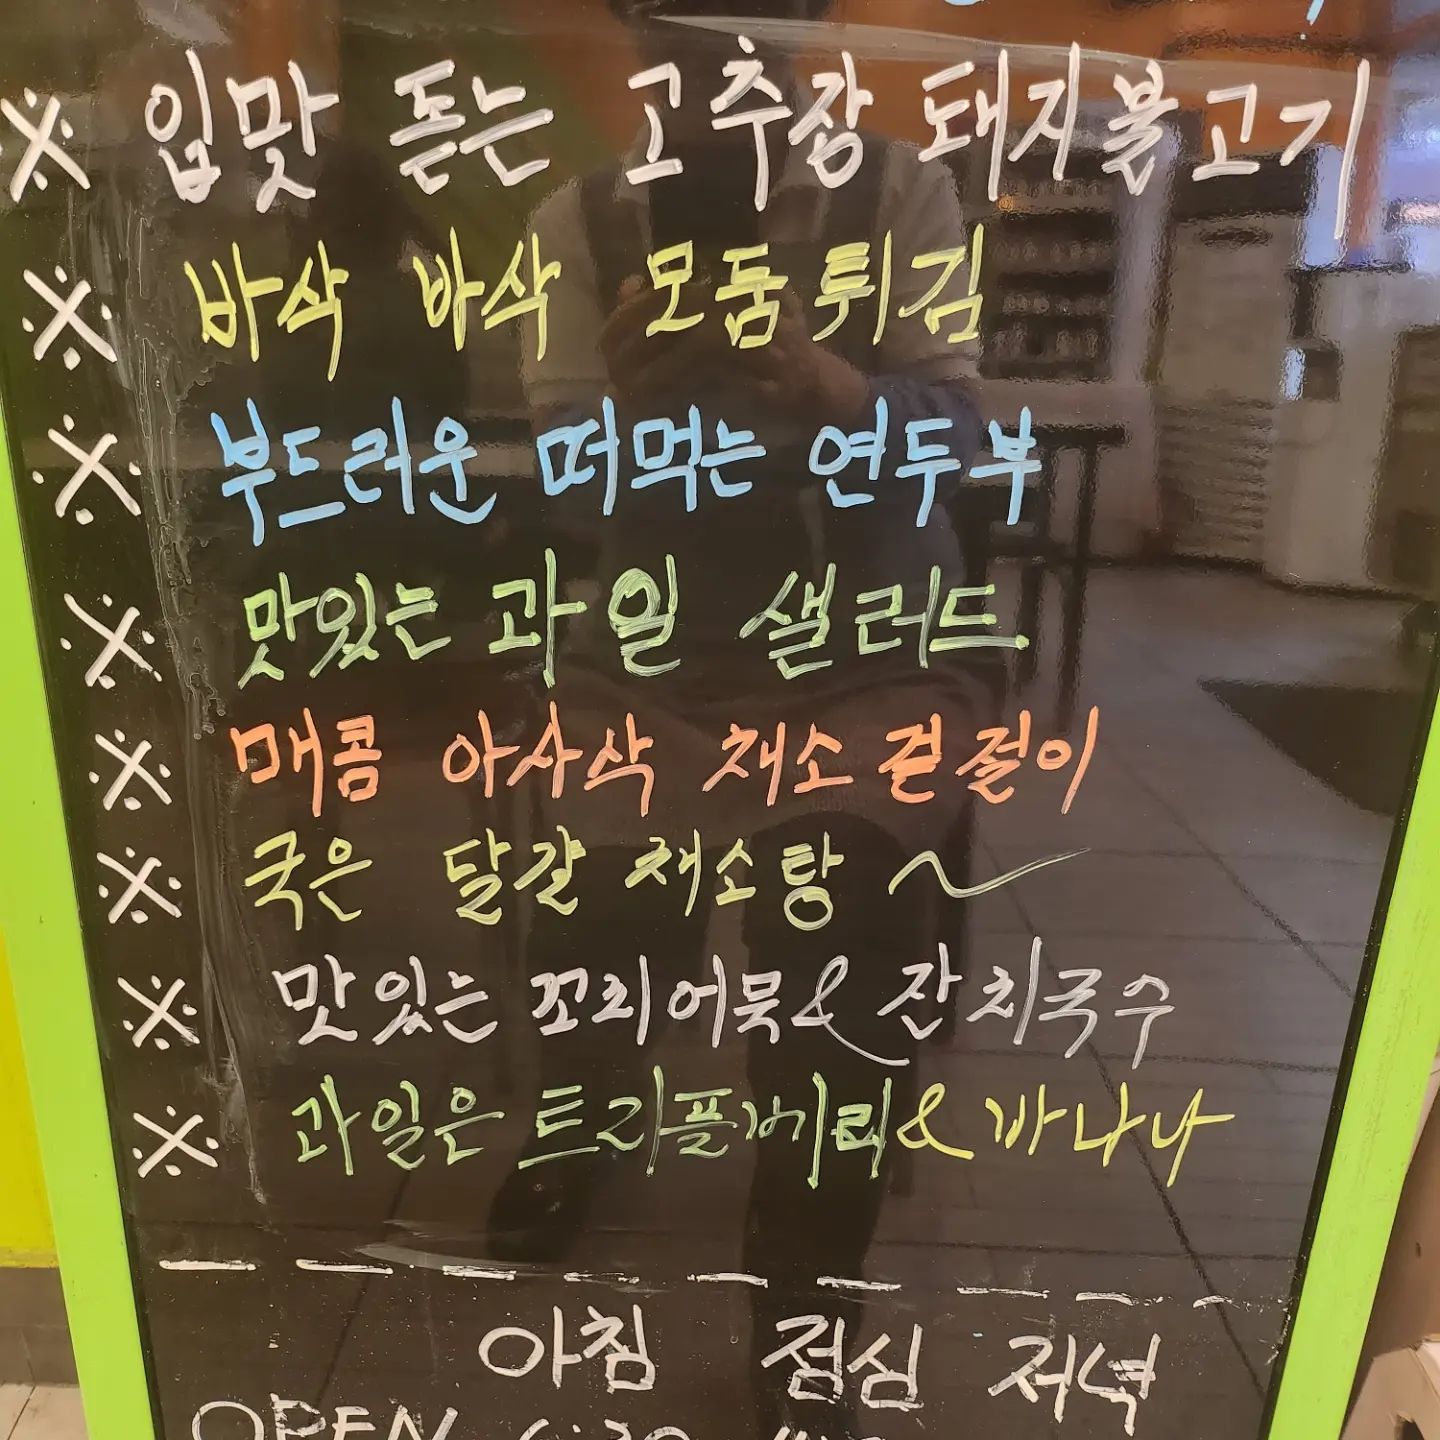 ※ 입맛 돋는 고추장 돼지불고기
※ 바삭 바삭 모둠튀김
※ 부드러운 떠먹는 연두부
※ 맛있는 과일 샐러드
※ 매콤 아사삭 채소겉절이
※ 국은 달걀 채소탕 ~
※ 맛있는 꼬리어묵 & 잔치국수
※ 과일은 트리플베리 & 바나나
아침 점심 저녁
OPEN 6:30